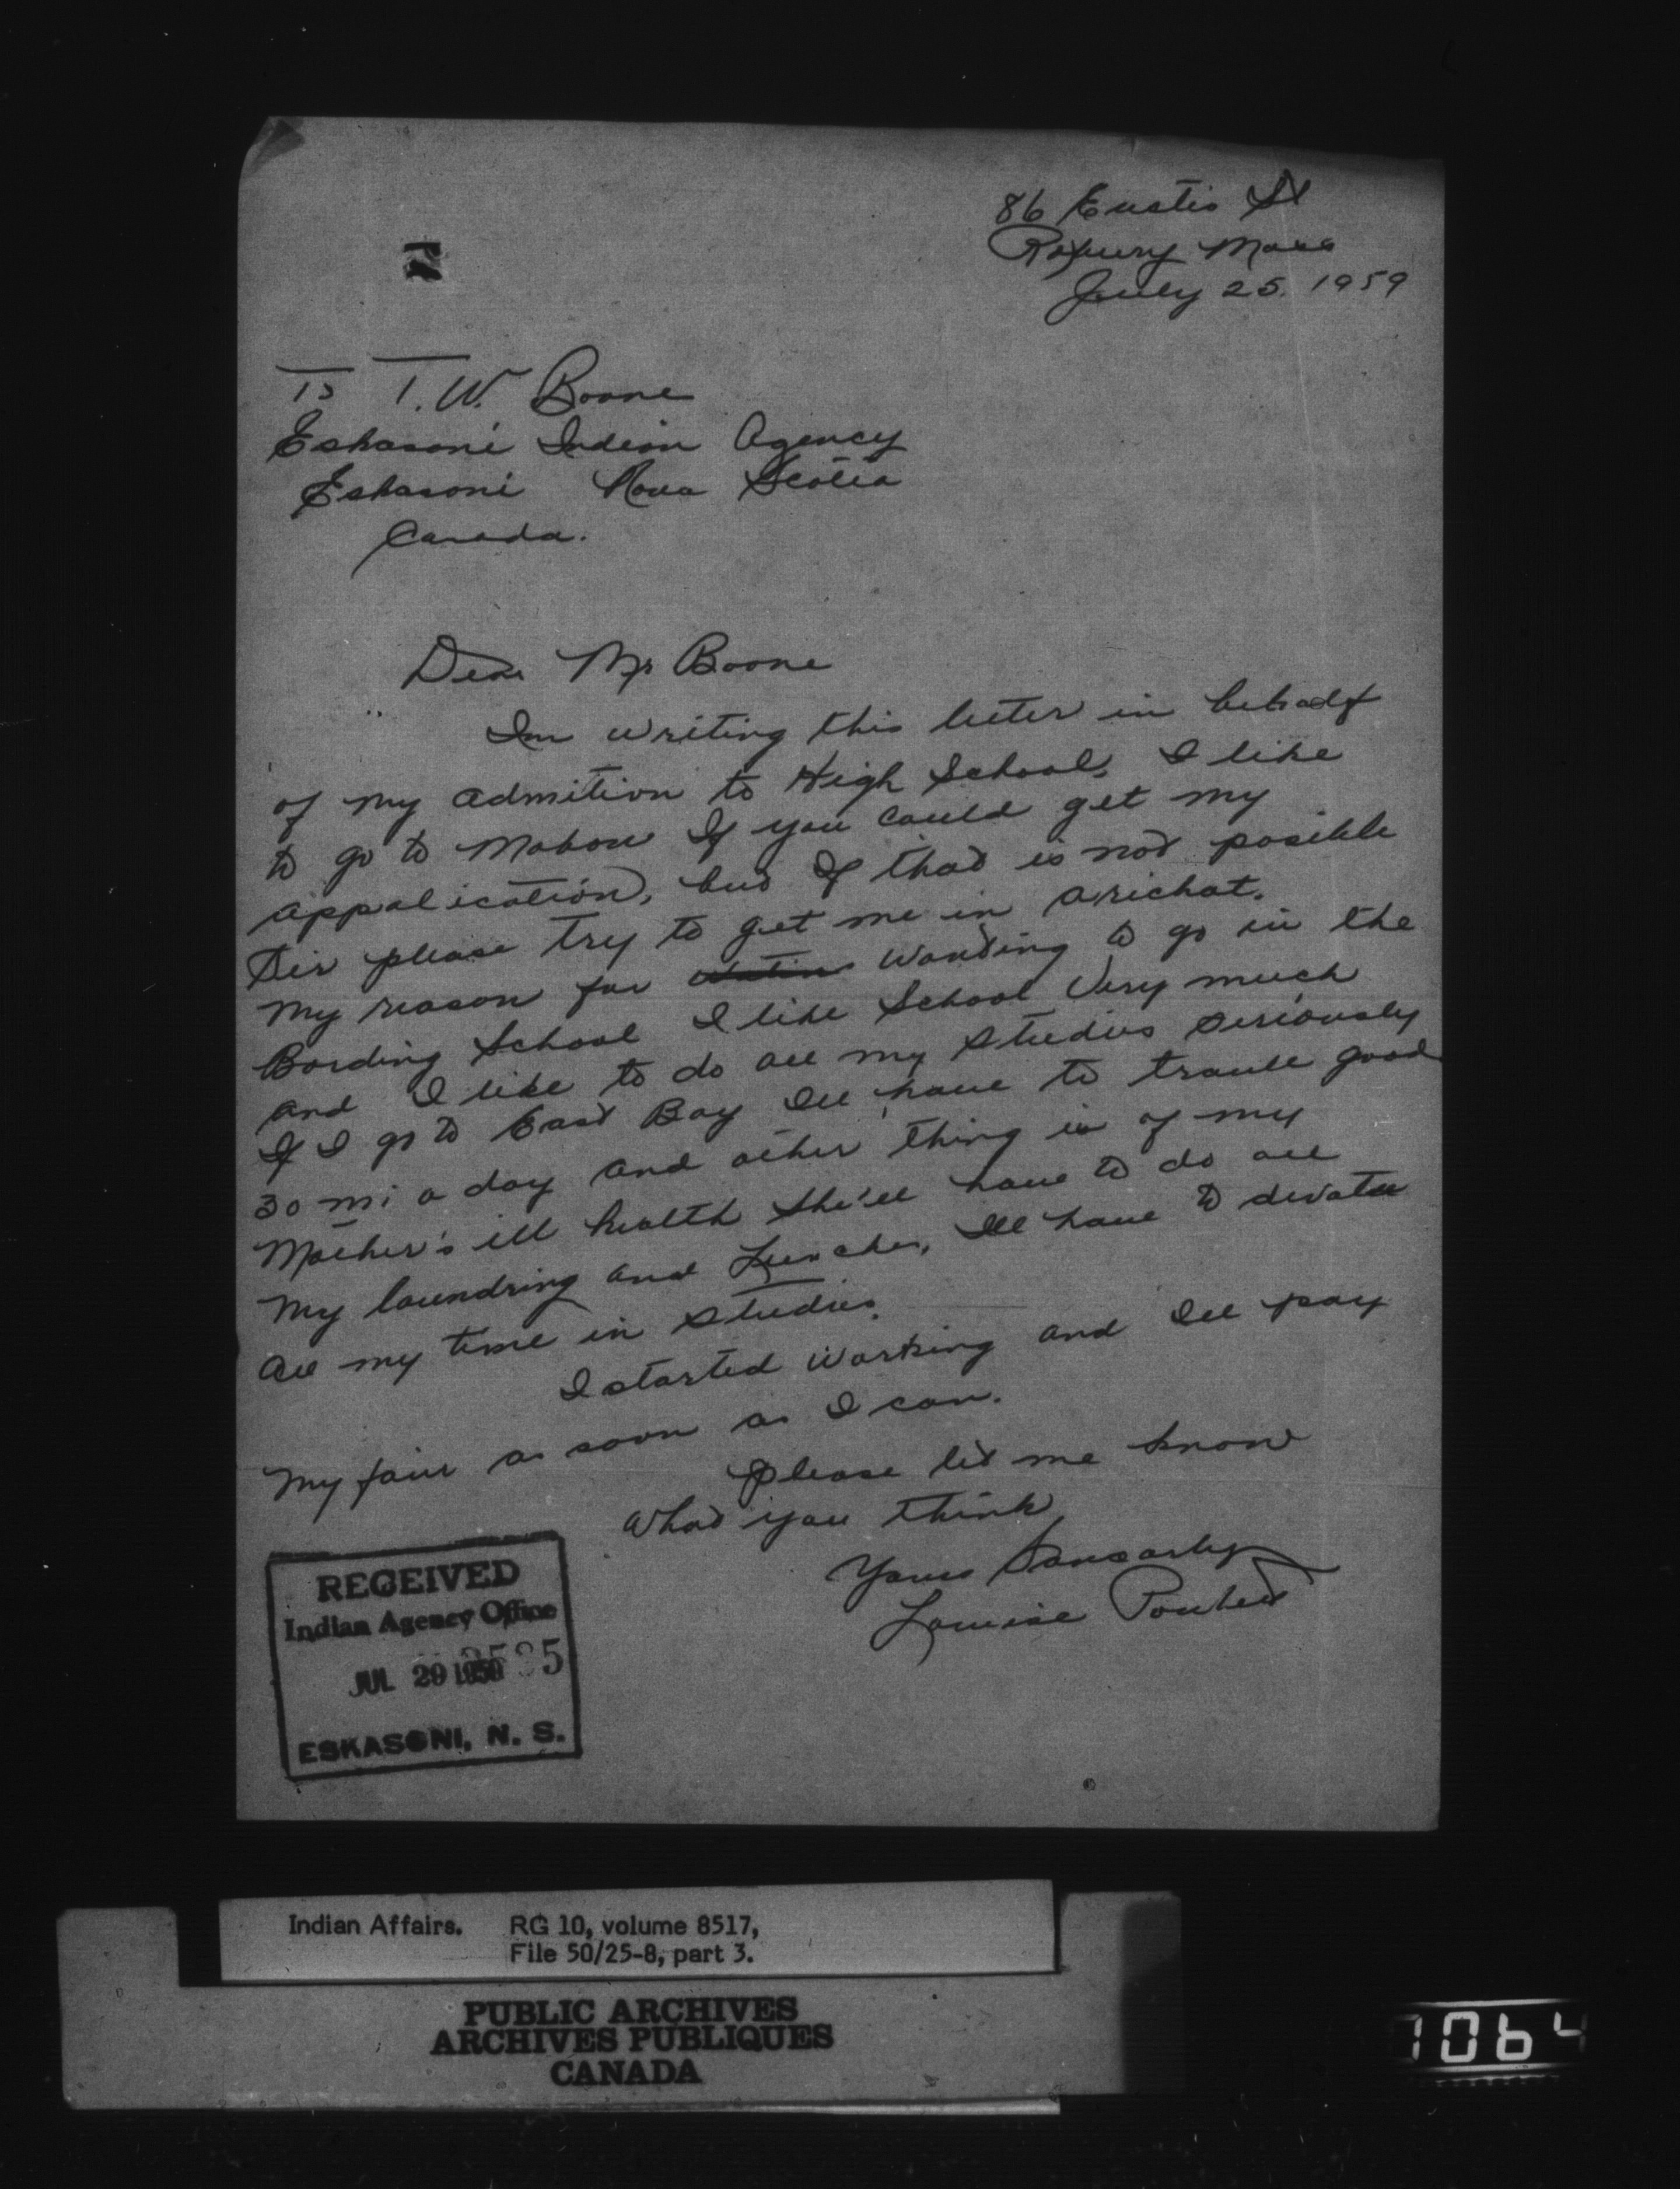 86 Eustis St
Roxbury Mass
July 25. 1959
To T.W. Boone
Eskasoni Indian Agency
Eskasoni Nova Scotia
Canada.
Dear Mr Boone
Im writing this letter in behalf
of my admition to High School, I like
to go to Mabou If you could get my
appalication, but If that is not posible
Sir please try to get me in Arichat.
My reason for wanting to go in the
Bording School I like School Very much
and I like to do all my studies seriously
If I go to East Bay Ill have to travle good
30 mi a day and other thing is of my
Mother's ill health She'll have to do all
My laundring and Lunches, Ill have to devote
all my time in studies.
I started working and Ill pay
My fair as soon as I can.
Please let me know
What you think
Yours
Louise
RECEIVED
Indian Agency Office
JUL 29 1959
ESKASONI, N. S.
Indian Affairs. RG 10, volume 8517,
File 50/25-8, part 3.
PUBLIC ARCHIVES
ARCHIVES PUBLIQUES
CANADA
1064